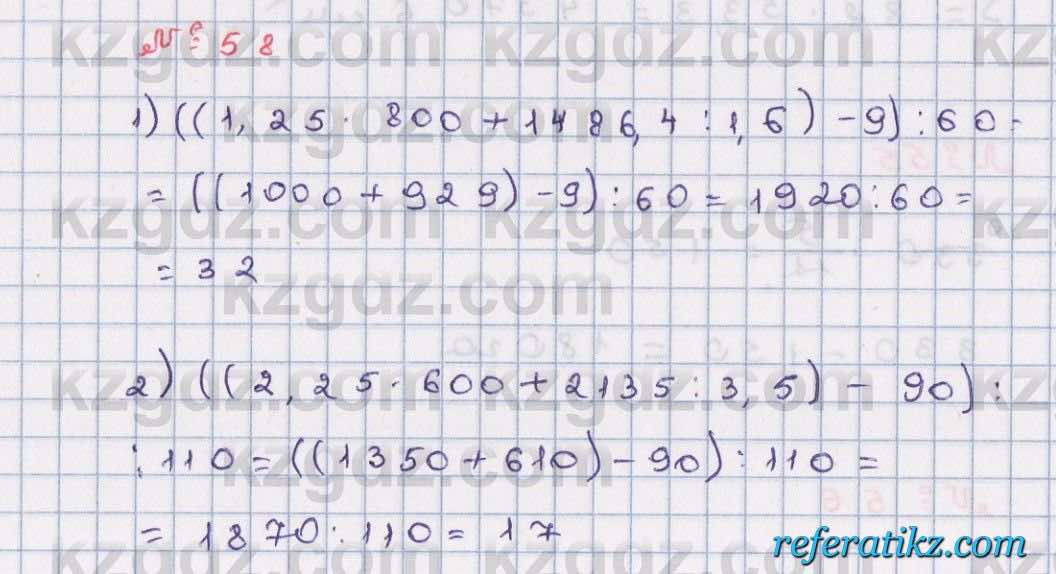 № 58
1) ((1,25 · 800 + 1486,4 : 1,6) - 9) : 60 =
= ((1000 + 929) - 9) : 60 = 1920 : 60 =
= 32
2) ((2,25 · 600 + 2135 : 3,5) - 90) :
: 110 = ((1350 + 610) - 90) : 110 =
= 1870 : 110 = 17
referatikz.com
kzgdz.com